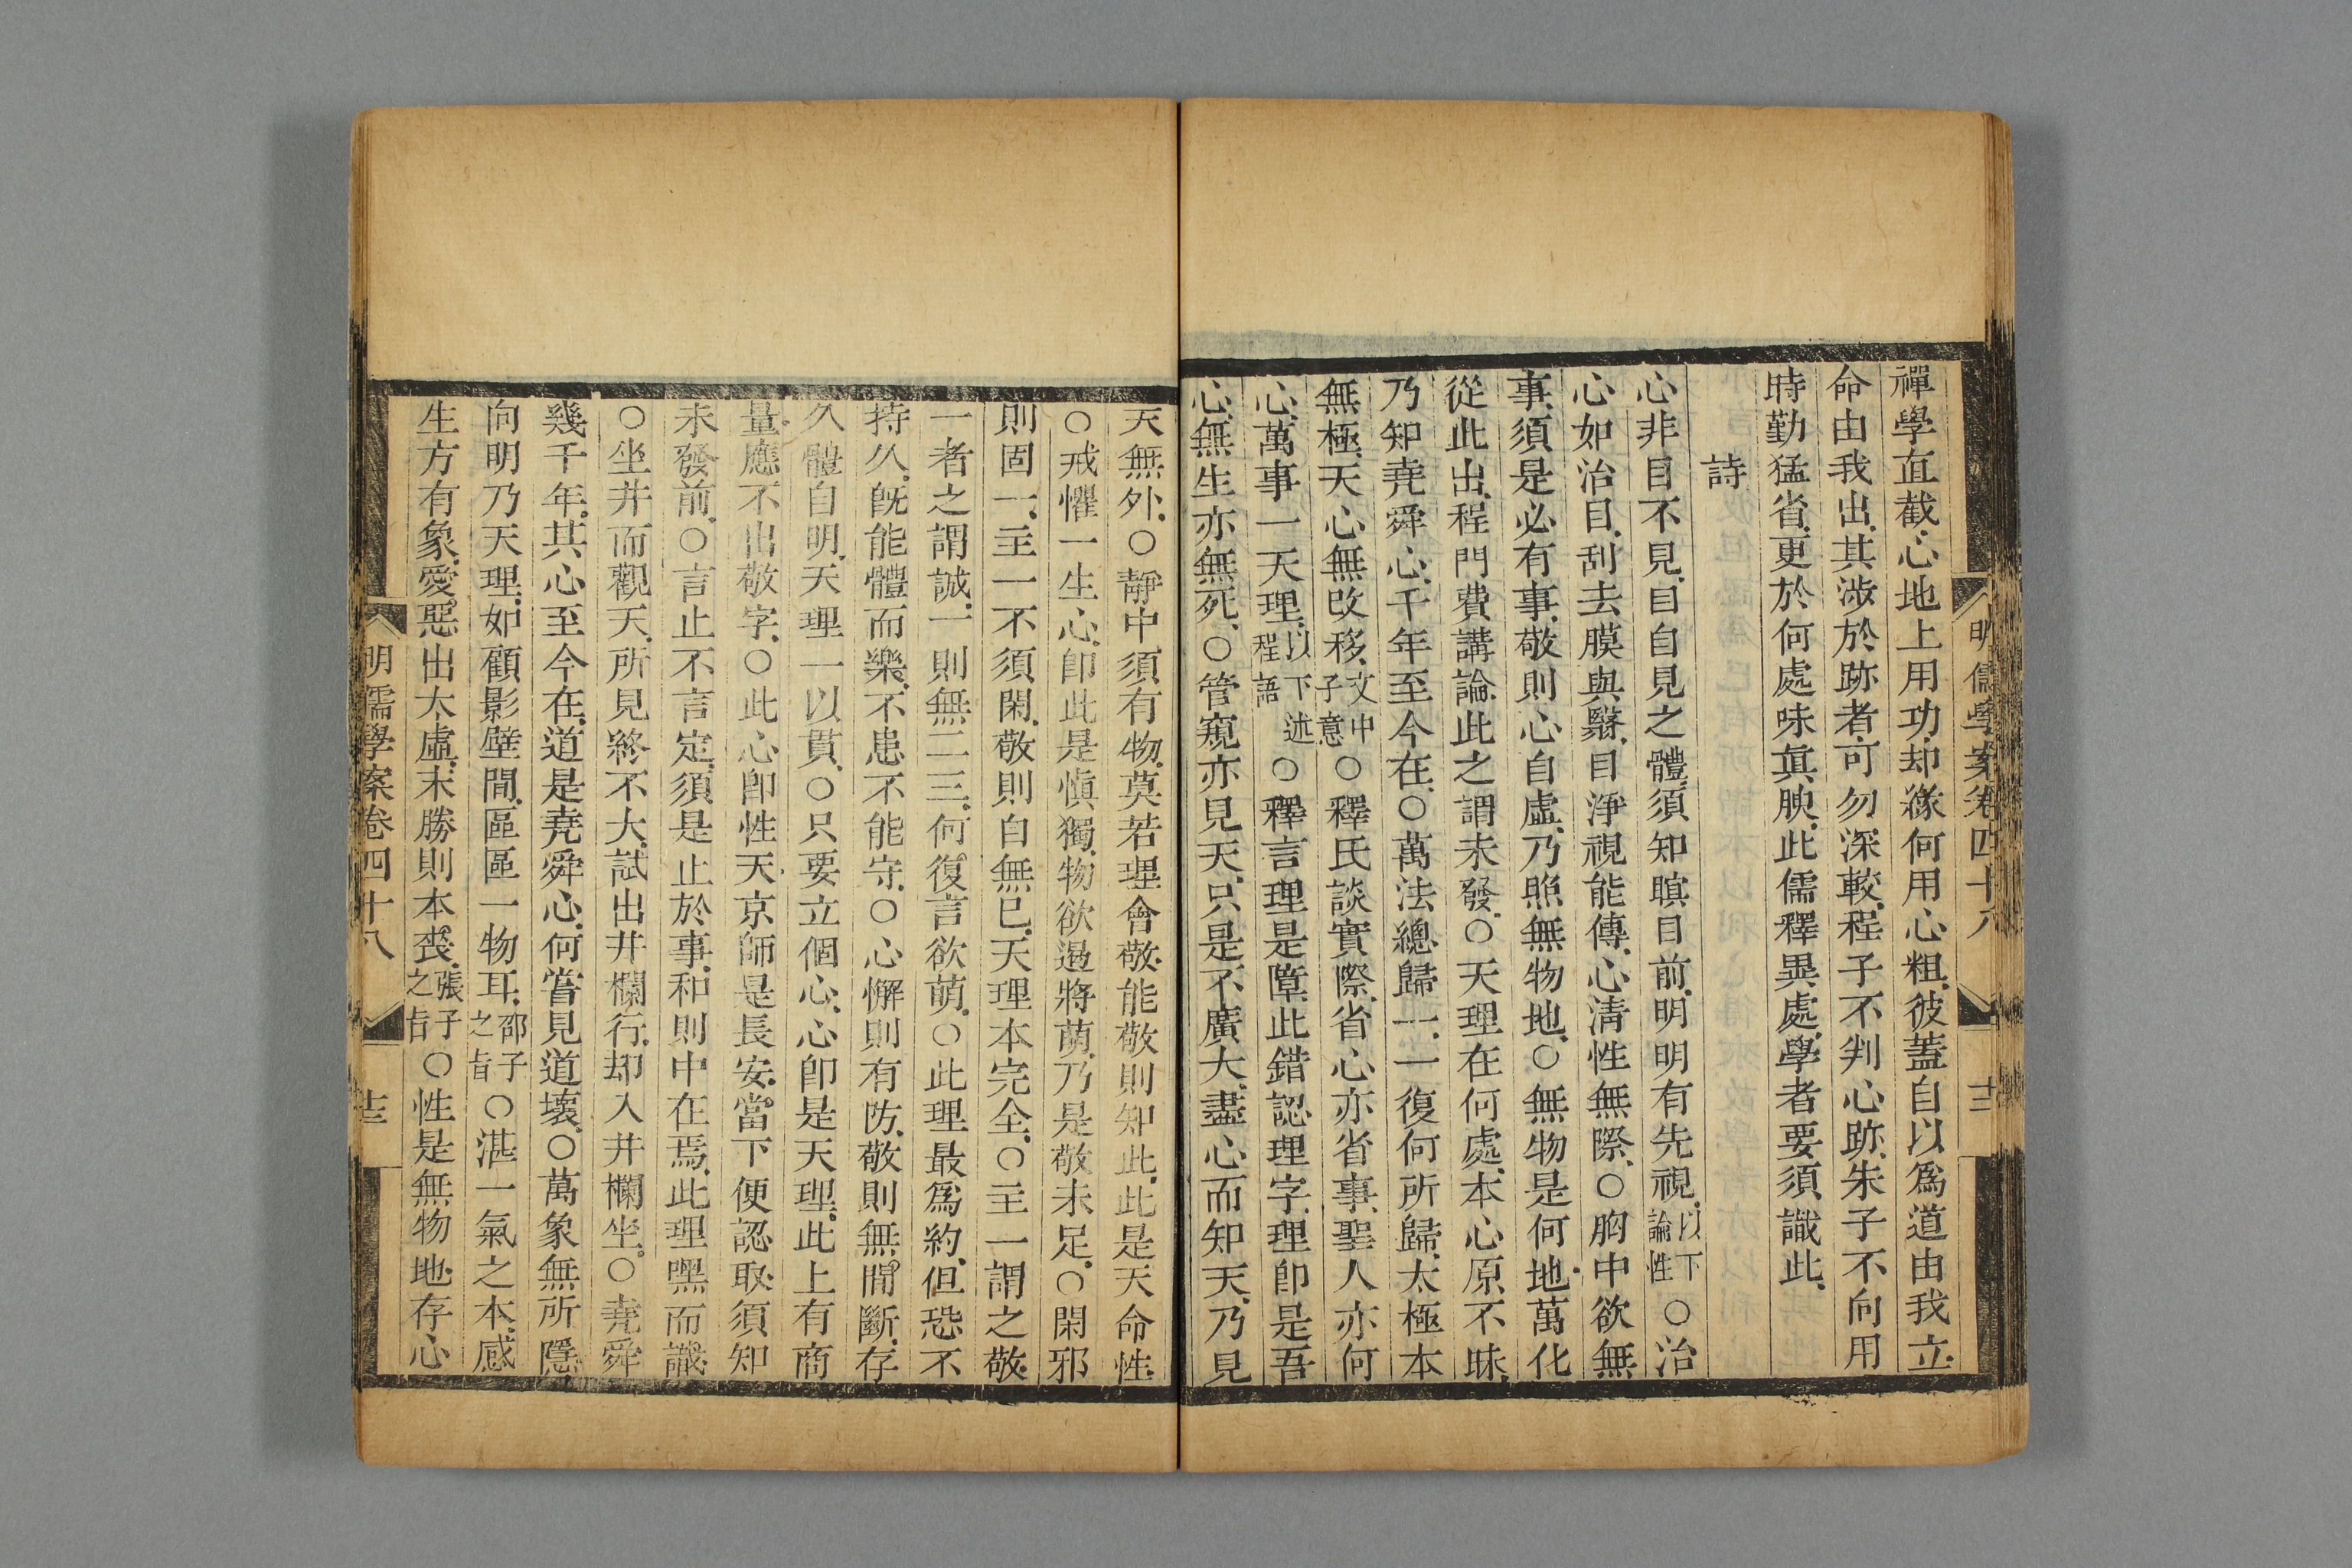 明儒學案卷四十八
禪學直截心地上用功却緣何用心粗彼蓋自以爲道由我立
命由我出其涉於跡者可勿深較程子不判心跡朱子不向用
時勤猛省更於何處味眞腴此儒釋異處學者要須識此
詩
心非目不見目自見之體須知瞑目前明明有先視以下論性○治
心如治目刮去膜與翳目淨視能傳心清性無際○胸中欲無
事須是必有事敬則心自虛乃照無物地○無物是何地萬化
從此出程門費講論此之謂未發○天理在何處本心原不昧
乃知堯舜心千年至今在○萬法總歸一一復何所歸太極本
無極天心無改移文中子意○釋氏談實際省心亦省事聖人亦何
心萬事一天理以下述程語○釋言理是障此錯認理字理卽是吾
心無生亦無死○管窺亦見天只是不廣大盡心而知天乃見
天無外○靜中須有物莫若理會敬能敬則知此此是天命性
○戒懼一生心卽此是愼獨物欲過將萌乃是敬未足○閑邪
則固一主一不須閑敬則自無已天理本完全○主一謂之敬
一者之謂誠一則無二三何復言欲萌○此理最爲約但恐不
持久旣能體而樂不患不能守○心懈則有防敬則無間斷存
久體自明天理一以貫○只要立個心心卽是天理此上有商
量應不出敬字○此心卽性天京師是長安當下便認取須知
未發前○言止不言定須是止於事和則中在焉此理嘿而識
○坐井而觀天所見終不大試出井欄行却入井欄坐○堯舜
幾千年其心至今在道是堯舜心何嘗見道壞○萬象無所隱
向明乃天理如顧影壁間區區一物耳邵子之旨○湛一氣之本感
生方有象愛惡出太虛末勝則本喪張子之旨○性是無物地存心
明儒學案卷四十八